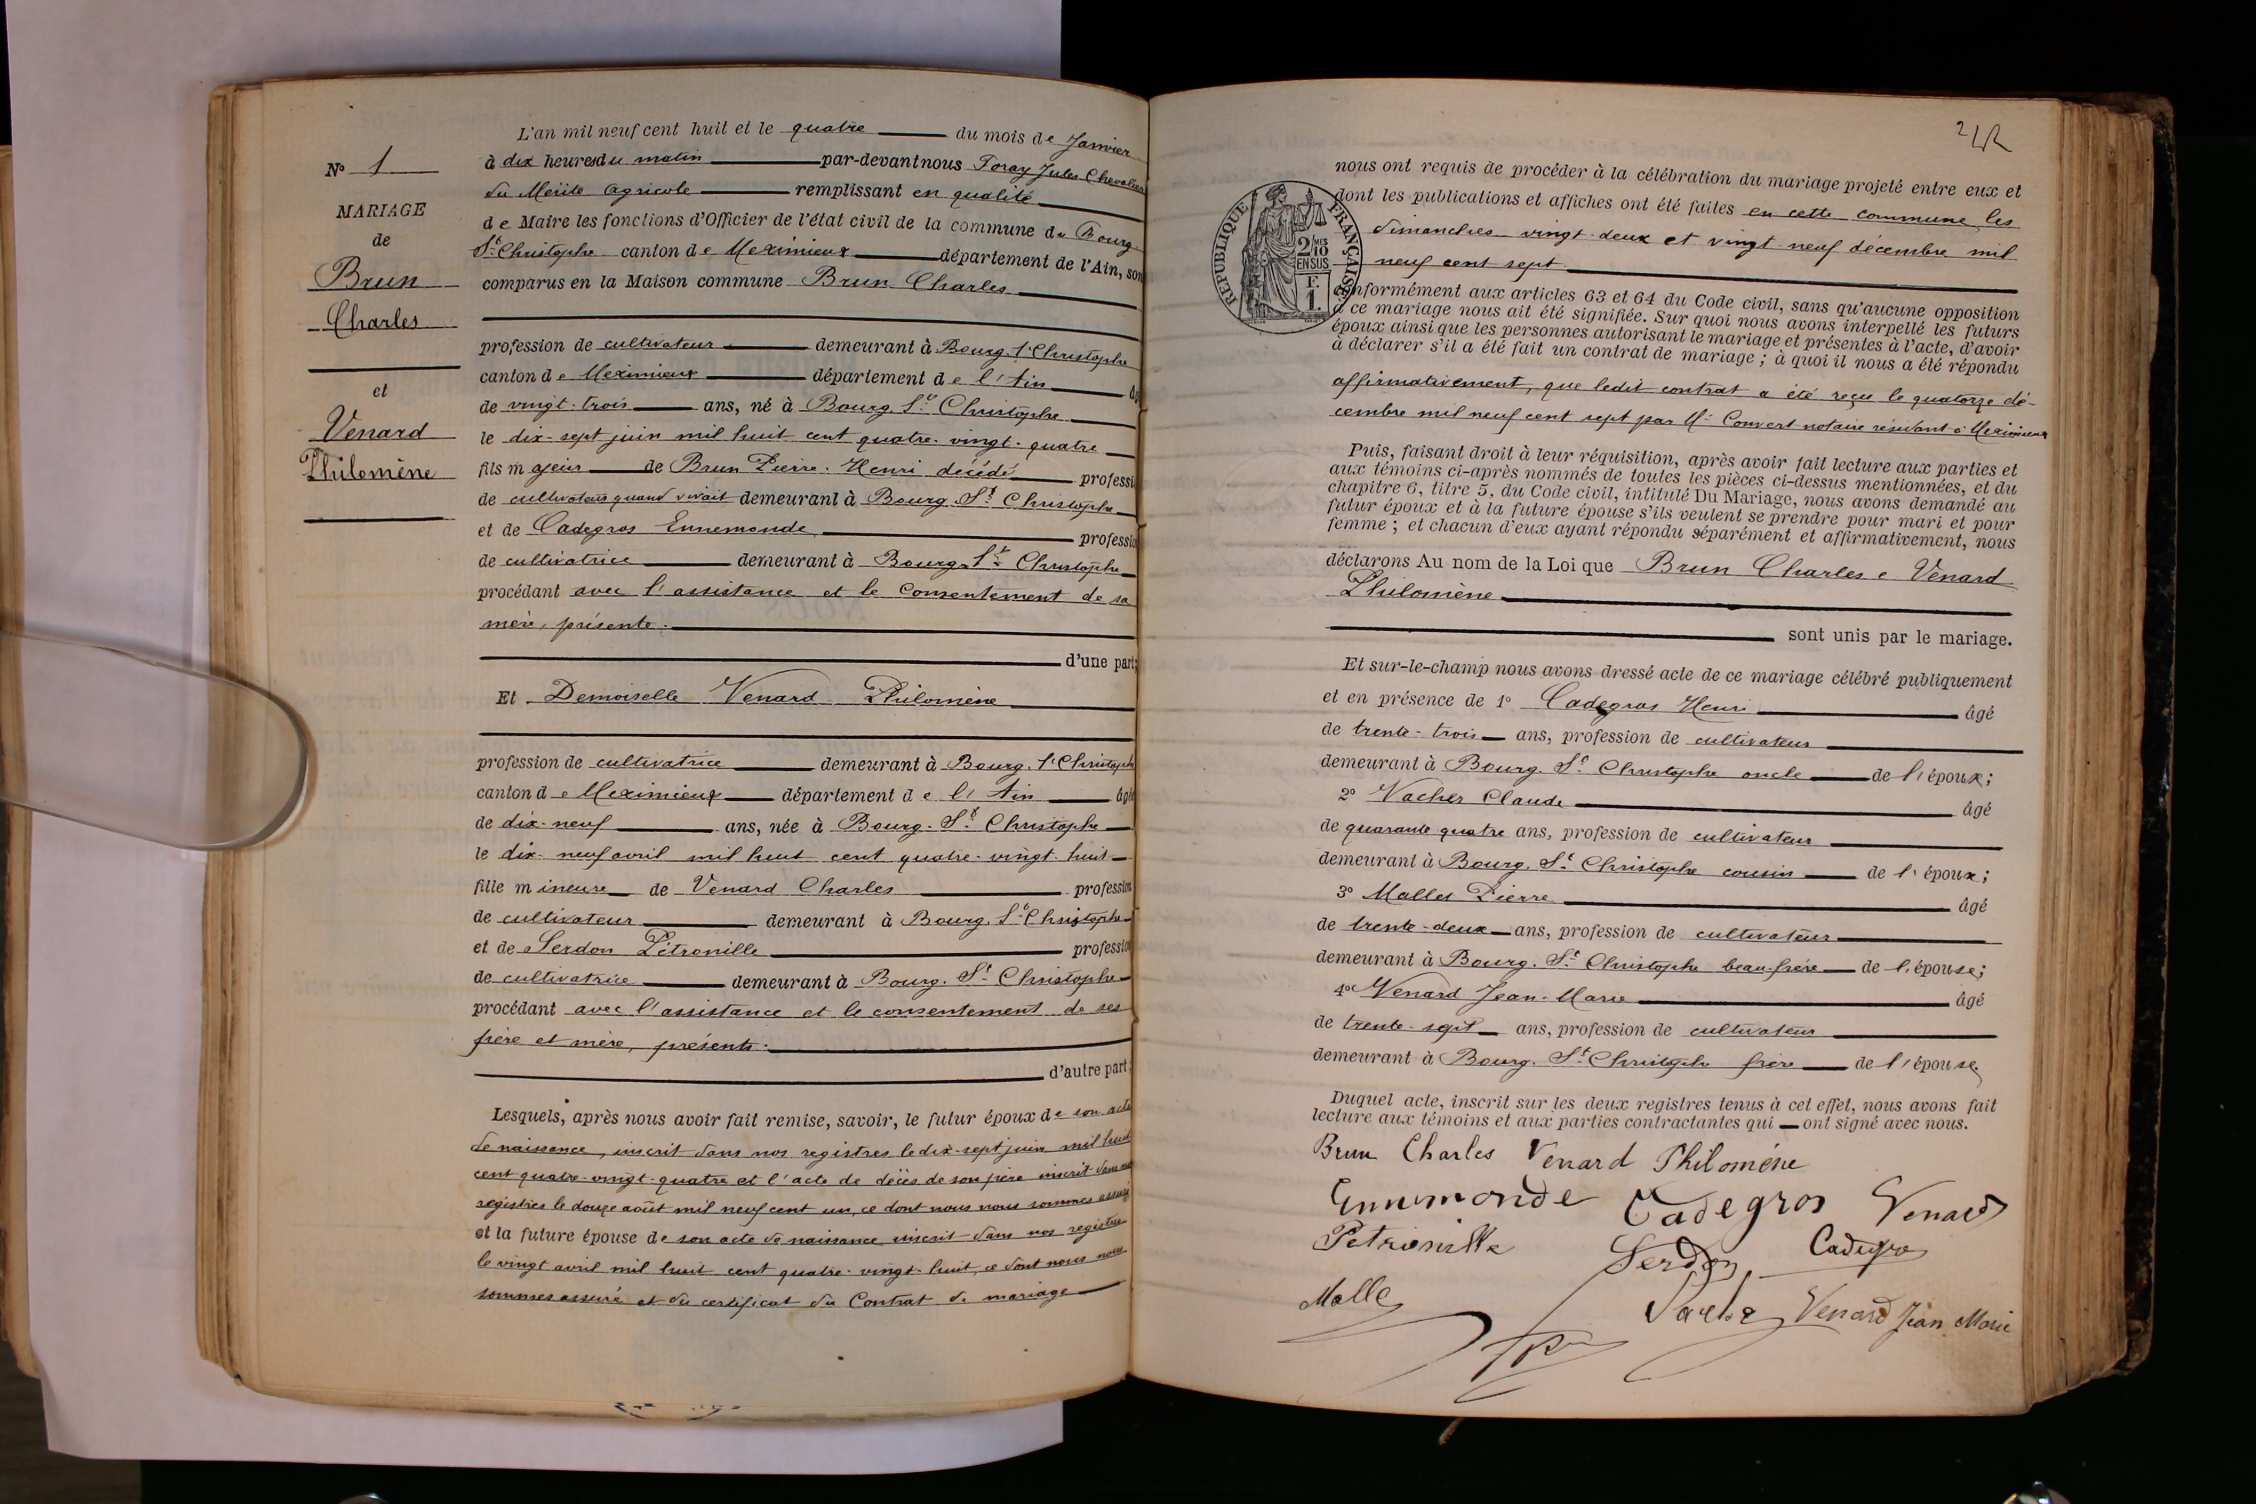 N° 1
MARIAGE
de
Brun
Charles
et
Venard
Philomène
L'an mil neuf cent huit et le quatre du mois de Janvier
à dix heures du matin par-devant nous Foray Jules Chevalier
du Mérite Agricole remplissant en qualité
de Maire les fonctions d'Officier de l'état civil de la commune de Bourg
St Christophe canton de Meximieux département de l'Ain, son
comparus en la Maison commune Brun Charles
profession de cultivateur demeurant à Bourg St Christophe
canton de Meximieux département de l'Ain âg
de vingt-trois ans, né à Bourg St Christophe
le dix-sept juin mil huit cent quatre-vingt-quatre
fils majeur de Brun Pierre-Henri décédé professi
de cultivateur quand vivait demeurant à Bourg St Christophe
et de Cadegros Ennemonde professio
de cultivatrice demeurant à Bourg-St Christophe
procédant avec l'assistance et le consentement de sa
mère, présente.
d'une part;
Et Demoiselle Venard Philomène
profession de cultivatrice demeurant à Bourg. St Christophe
canton de Meximieux département de l'Ain âgée
de dix-neuf ans, née à Bourg-St Christophe
le dix-neuf avril mil huit cent quatre-vingt-huit
fille mineure de Venard Charles profession
de cultivateur demeurant à Bourg. St Christophe
et de Serdon Pétronille professio
de cultivatrice demeurant à Bourg. St Christophe
procédant avec l'assistance et le consentement de ses
père et mère, présents.
d'autre part.
Lesquels, après nous avoir fait remise, savoir, le futur époux de son acte
de naissance, inscrit dans nos registres le dix-sept juin mil huit
cent quatre-vingt-quatre et l'acte de décès de son père inscrit dans nos
registres le douze août mil neuf cent un, ce dont nous nous sommes assuré
et la future épouse de son acte de naissance inscrit dans nos registres
le vingt avril mil huit cent quatre-vingt-huit, ce dont nous nous
sommes assuré et du certificat du Contrat de mariage
212
RÉPUBLIQUE FRANÇAISE
2/10MES
EN SUS
F.
1.
nous ont requis de procéder à la célébration du mariage projeté entre eux et
dont les publications et affiches ont été faites en cette commune les
dimanches vingt-deux et vingt-neuf décembre mil
neuf cent sept.
conformément aux articles 63 et 64 du Code civil, sans qu'aucune opposition
à ce mariage nous ait été signifiée. Sur quoi nous avons interpellé les futurs
époux ainsi que les personnes autorisant le mariage et présentes à l'acte, d'avoir
à déclarer s'il a été fait un contrat de mariage ; à quoi il nous a été répondu
affirmativement, que ledit contrat a été reçu le quatorze dé-
cembre mil neuf cent sept par Me Convert notaire résidant à Meximieux
Puis, faisant droit à leur réquisition, après avoir fait lecture aux parties et
aux témoins ci-après nommés de toutes les pièces ci-dessus mentionnées, et du
chapitre 6, titre 5, du Code civil, intitulé Du Mariage, nous avons demandé au
futur époux et à la future épouse s'ils veulent se prendre pour mari et pour
femme ; et chacun d'eux ayant répondu séparément et affirmativement, nous
déclarons Au nom de la Loi que Brun Charles e Venard
Philomène
sont unis par le mariage.
Et sur-le-champ nous avons dressé acte de ce mariage célébré publiquement
et en présence de 1° Cadegros Henri âgé
de trente-trois ans, profession de cultivateur
demeurant à Bourg. St Christophe oncle de l'époux;
2° Vacher Claude âgé
de quarante quatre ans, profession de cultivateur
demeurant à Bourg. St Christophe cousin de l'époux;
3° Mallet Pierre âgé
de trente-deux ans, profession de cultivateur
demeurant à Bourg. St Christophe beau-frère de l'épouse;
4° Venard Jean-Marie âgé
de trente-sept ans, profession de cultivateur
demeurant à Bourg. St Christophe frère de l'épouse
Duquel acte, inscrit sur les deux registres tenus à cet effet, nous avons fait
lecture aux témoins et aux parties contractantes qui ont signé avec nous.
Brun Charles Venard Philomène
Ennemonde Cadegros Venard
Petronille Serdon Cadegros
Malle Vache Venard Jean Marie